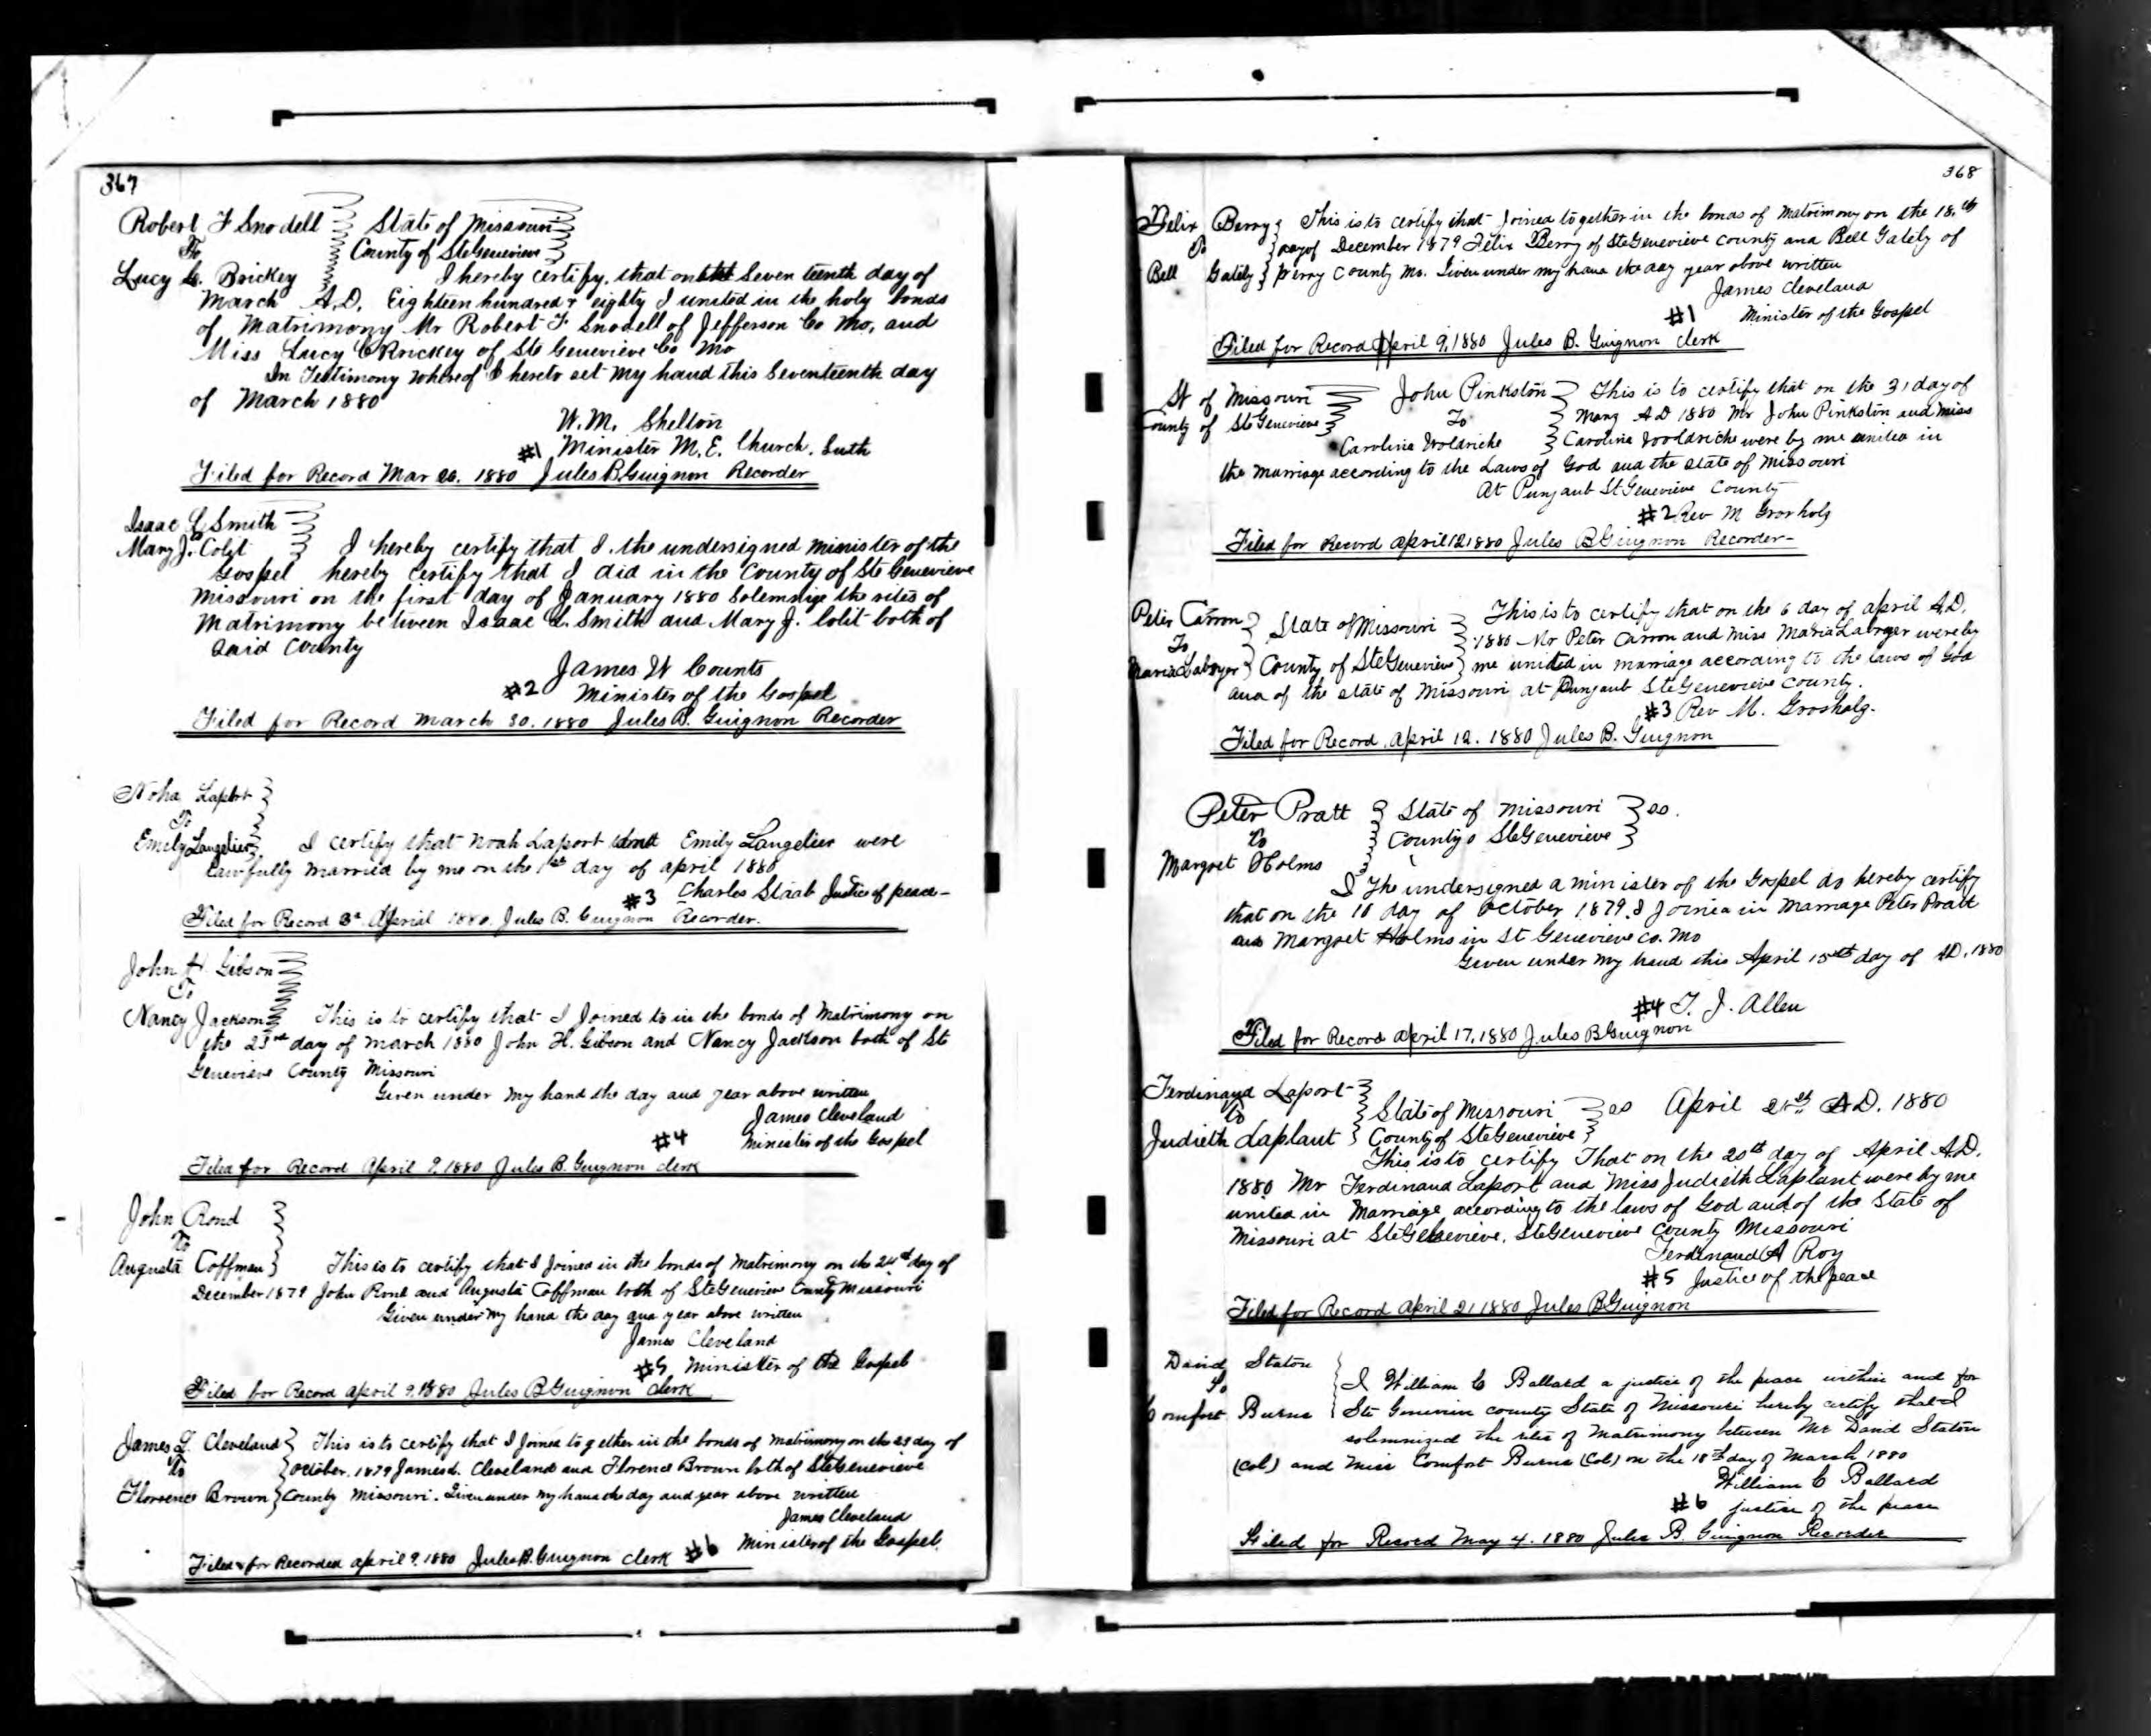 367
Robert F Snodell State of Missouri
To County of Ste Genevieve
Lucy C. Brickey I hereby certify, that on the Seventeenth day of
March A.D. Eighteen hundred & eighty I united in the holy bonds
of Matrimony Mr Robert F Snodell of Jefferson Co Mo, and
Miss Lucy C Brickey of Ste Genevieve Co Mo
In Testimony whereof I hereto set my hand this Seventeenth day
of March 1880
W. M. Shelton
#1 Minister M. E. Church, South
Filed for Record Mar 1880 Jules B. Guignon Recorder
Isaac L Smith
To
Mary J. Colit I hereby certify that I the undersigned minister of the
Gospel hereby certify that I did in the County of Ste Genevieve
Missouri on the first day of January 1880 Solemnize the rites of
Matrimony between Isaac L. Smith and Mary J. Colit both of
Said County
James W Counts
#2 Minister of the Gospel
Filed for Record March 30. 1880 Jules B. Guignon Recorder
Noha Laport
To
Emily Langelier I certify that Noah Laport and Emily Langelier were
Lawfully married by me on the 1st day of April 1880
#3 Charles Staab Justice of peace-
Filed for Record 3d Aprial 1880. Jules B. Guignon Recorder.
John H. Gibson
To
Nancy Jackson This is to certify that I Joined to in the bonds of Matrimony on
the 23rd day of March 1880 John H. Gibson and Nancy Jackson both of St
Genevieve County Missouri
Given under my hand the day and year above written
James Cleveland
#4 Minister of the Gospel
Filed for Record April 9, 1880 Jules B. Guignon clerk
John Rond
To
Augusta Coffman This is to certify that I Joined in the bonds of Matrimony on the 24th day of
December 1879 John Rond and Augusta Coffman both of Ste Genevieve County Missouri
Given under my hand the day and year above written
James Cleveland
#5 Minister of the Gospel
Filed for Record April 9. 1880 Jules B Guignon clerk
James L. Cleveland This is to certify that I Joined together in the bonds of matrimony on the 23 day of
To October, 1879 James L. Cleveland and Florence Brown both of Ste Genevieve
Florence Brown County Missouri. Given under my hand the day and year above written
James Cleveland
Minister of the Gospel.
Filed for Recorded April 9. 1880 Jules B. Guignon clerk #6
368
Felix Berry This is to certify that Joined together in the bonds of Matrimony on the 18.th
To day of December 1879 Felix Berry of Ste Genevieve county and Bell Gately of
Bell Gately Perry County Mo. Given under my hand the day year above written
James Cleveland
#1 Minister of the Gospel
Filed for Record April 9, 1880 Jules B. Guignon clerk
St of Missouri John Pinkston This is to certify that on the 31 day of
County of Ste Genevieve To A D 1880 Mr John Pinkston and Miss
Carolina Woldriche Carolina Wooldriche were by me united in
the marriage according to the Laws of God and the state of Missouri
At Punjaub St Genevieve County
#2 Rev M Grosholz
Filed for Record April 12 1880 Jules B Guignon Recorder-
Peter Carron State of Missouri This is to certify that on the 6 day of April A.D.
To 1880 Mr Peter Carron and Miss Maria Labryer were by
Maria Labryer County of Ste Genevieve me united in marriage according to the laws of God
and of the state of Missouri at Punjaub Ste Genevieve County.
#3 Rev M. Grosholz.
Filed for Record April 12. 1880 Jules B. Guignon
Peter Pratt State of Missouri ss.
to County o Ste Genevieve
Margret Holms
I The undersigned a minister of the Gospel do hereby certify
that on the 10 day of October 1879 I joined in Marriage Peter Pratt
and Margret Holms in St Genevieve Co. Mo
Given under my hand this April 15th day of AD. 1880
#4 T. J. Allen
Filed for Record April 17, 1880 Jules B Guignon
Ferdinand Laport
to State of Missouri ss April 21st AD. 1880
Judieth Laplant County of Ste Genevieve
This is to certify That on the 20th day of April A.D.
1880 Mr Ferdinand Laport and Miss Judieth Laplant were by me
united in Marriage according to the laws of God and of the State of
Missouri at Ste Genevieve, Ste Genevieve County Missouri
Ferdinand A Roy
#5 Justice of the peace
Filed for Record April 21 1880 Jules B Guignon
David Staton
To I William C Ballard a justice of the peace within and for
Comfort Burns Ste Genevieve county State of Missouri hereby certify that I
solemnized the rites of Matrimony between Mr David Staton
(Col) and Miss Comfort Burns (Col) on the 18th day of March 1880
William C Ballard
#6 justice of the peace
Filed for Record May 4. 1880 Jules B. Guignon Recorder